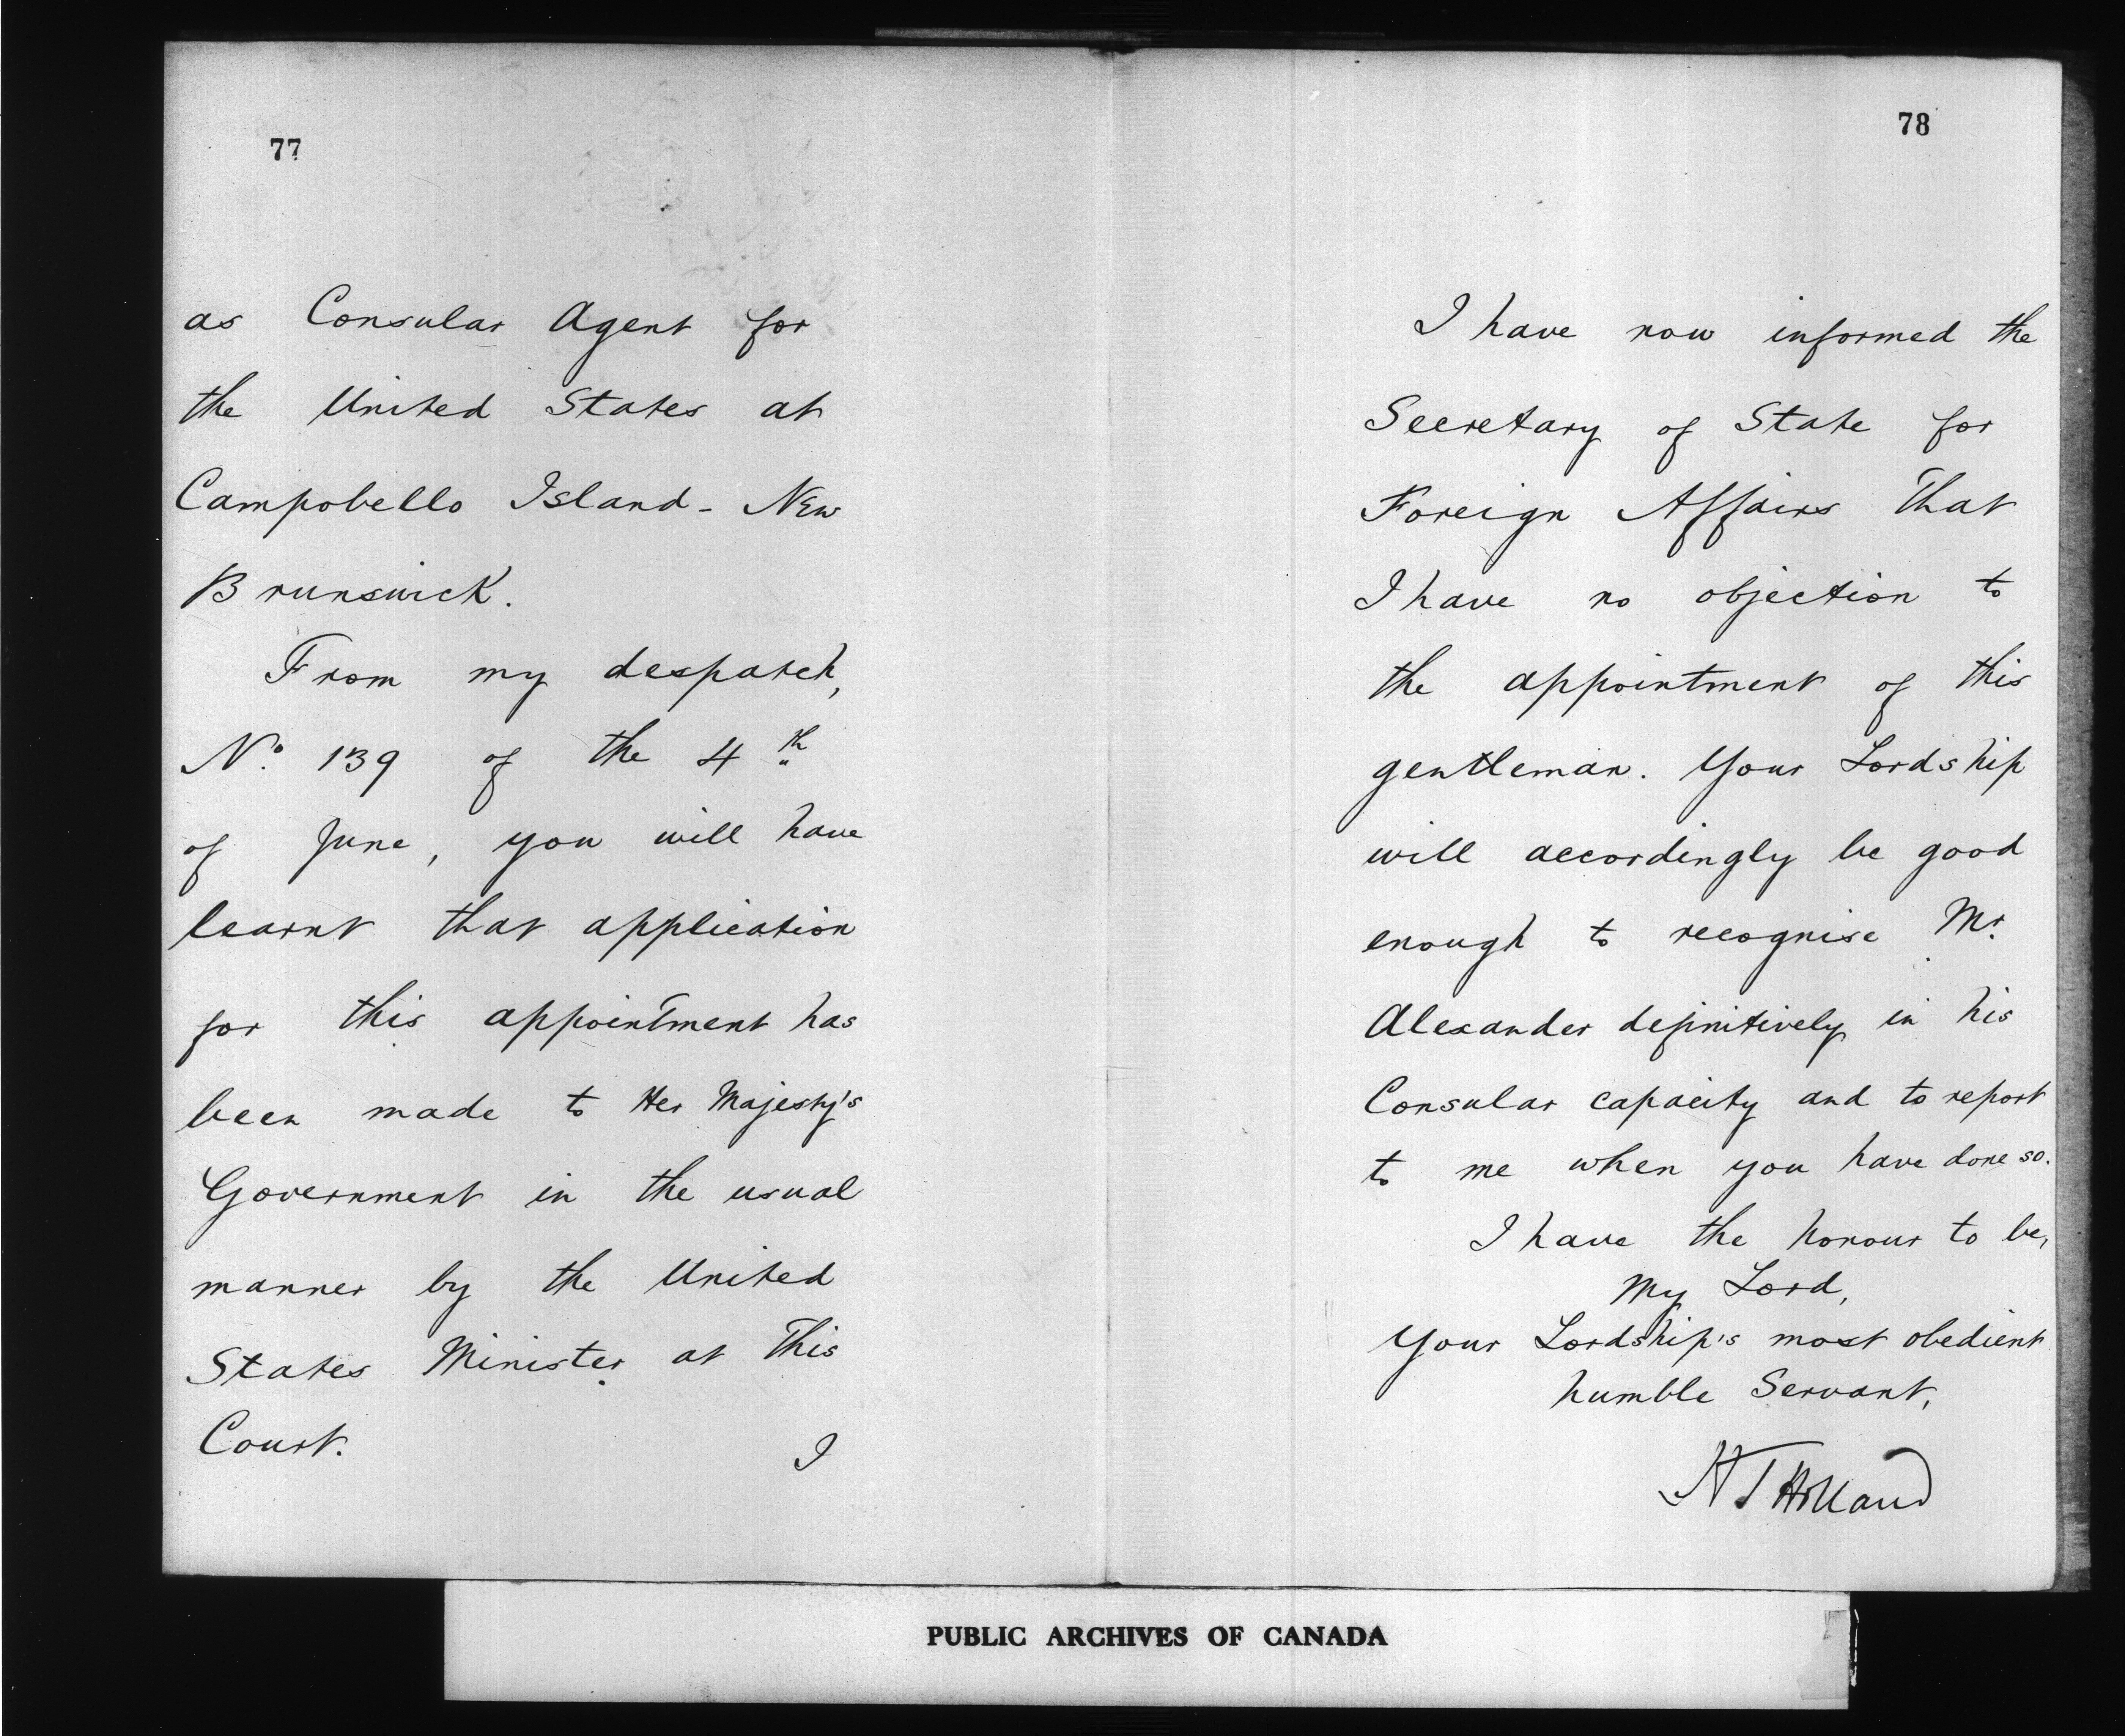 77
as Consular Agent for
the United States at
Campobello Island - New
Brunswick.
From my despatch,
No. 139 of the 4th
of June, you will have
learnt that application
for this appointment has
been made to Her Majesty's
Government in the usual
manner by the United
States Minister at this
Court.
I
78
I have now informed the
Secretary of State for
Foreign Affairs that
I have no objection to
the appointment of this
gentleman. Your Lordship
will accordingly be good
enough to recognise Mr.
Alexander definitively in his
Consular capacity and to report
to me when you have done so.
I have the honour to be,
My Lord,
Your Lordship's most obedient
humble Servant,
H T Holland
PUBLIC ARCHIVES OF CANADA